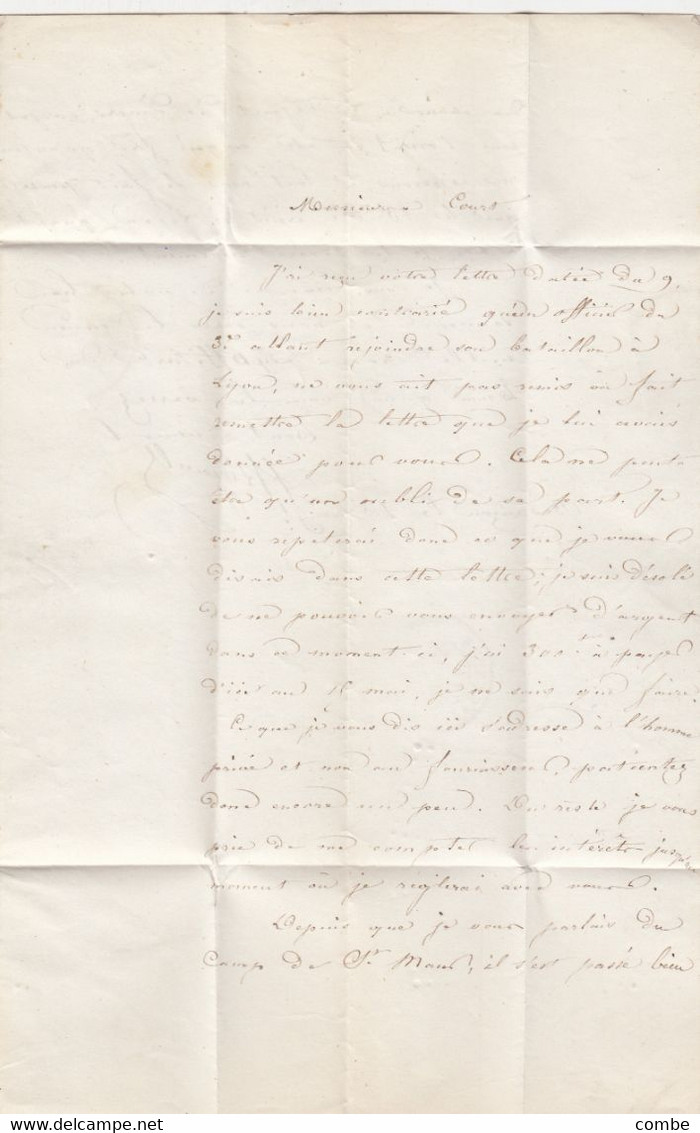 Monsieur Cours
J'ai reçu votre lettre datée du 9,
je suis bien contrarié qu'un officier du
3e allant rejoindre son bataillon à
Lyon, ne vous ait pas remis ou fait
remettre la lettre que je lui avais
donnée pour vous. Cela ne peut
être qu'un oubli de sa part. Je
vous répéterai donc ce que je vous
disais dans cette lettre; je suis désolé
de ne pouvoir vous envoyer d'argent
dans ce moment-ci, j'ai 300f à payer
d'ici au 16 mai, je ne sais que faire.
Ce que je vous dis ici s'adresse à l'homme
privé et non au fournisseur, patientez
donc encore un peu. Du reste je vous
prie de me compter les intérêts jusqu'au
moment où je réglerai avec vous.
Depuis que je vous parlais du
Camp de St Maur, il s'est passé bien
www.delcampe.net
combe